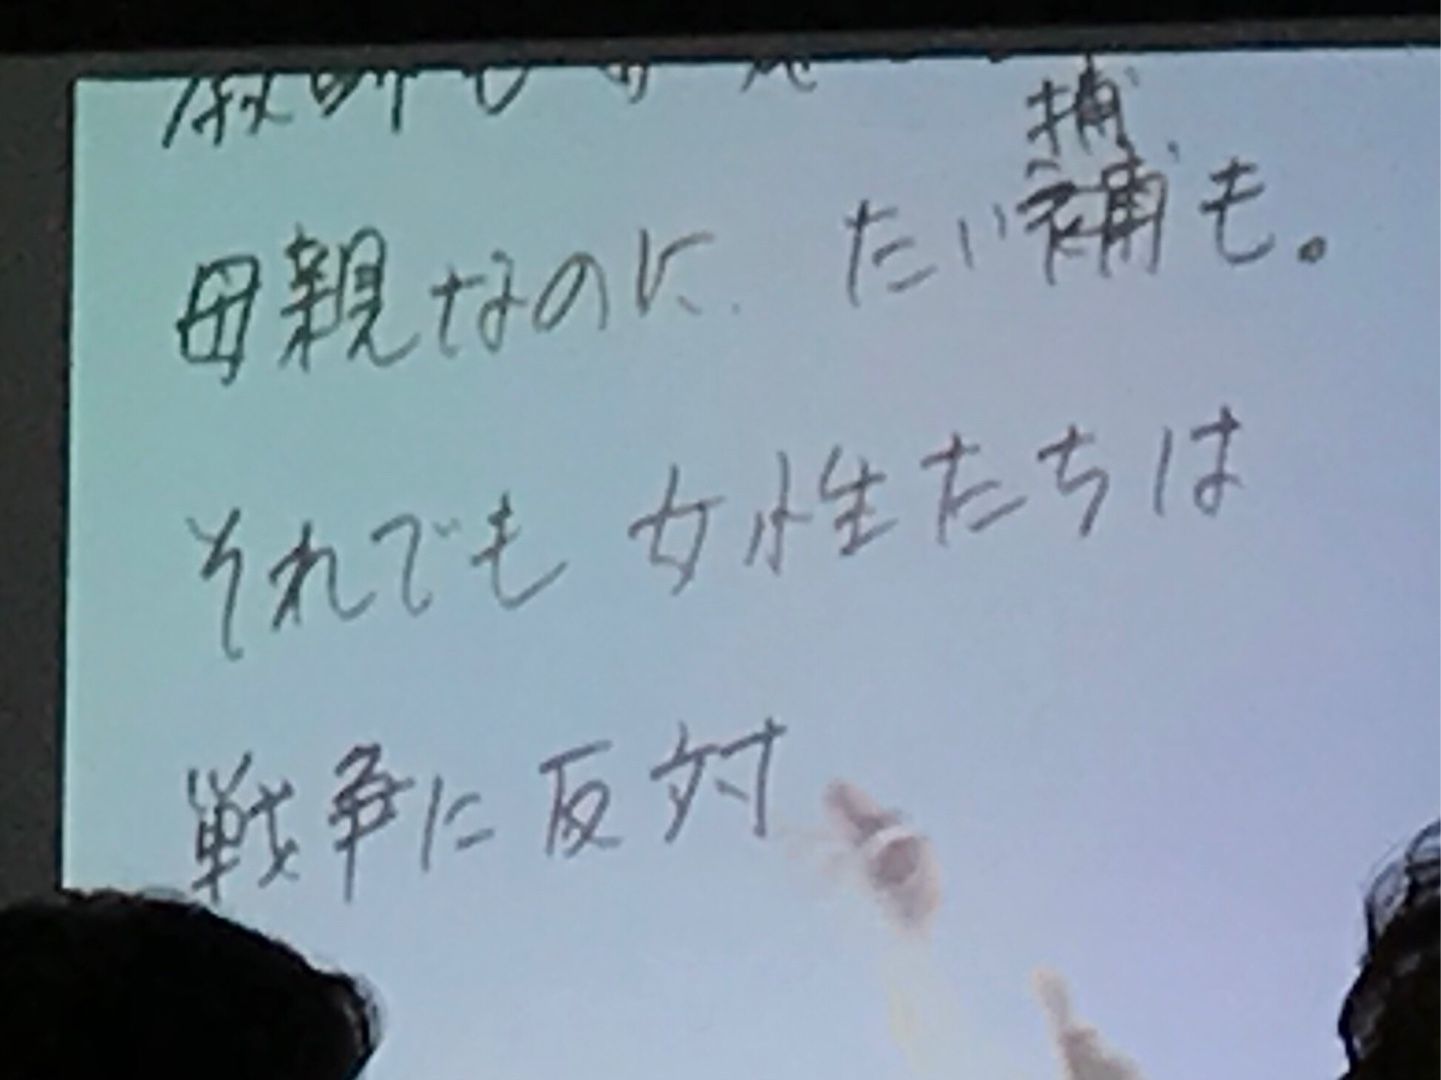 教師も
捕
母親なのに たい補も。
それでも 女性たちは
戦争に反対